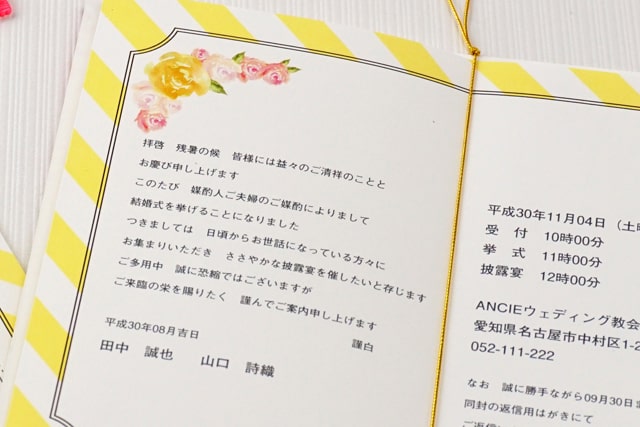 拝啓　残暑の候　皆様には益々のご清祥のことと
お慶び申し上げます
このたび　媒酌人ご夫婦のご媒酌によりまして
結婚式を挙げることになりました
つきましては　日頃からお世話になっている方々に
お集まりいただき　ささやかな披露宴を催したいと存じます
ご多用中　誠に恐縮ではございますが
ご来臨の栄を賜りたく　謹んでご案内申し上げます
謹白
平成30年08月吉日
田中　誠也　　山口　詩織
平成30年11月04日（土
受　付　10時00分
挙　式　11時00分
披露宴　12時00分
ANCIEウェディング教会
愛知県名古屋市中村区1-2
052-111-222
なお　誠に勝手ながら09月30日
同封の返信用はがきにて